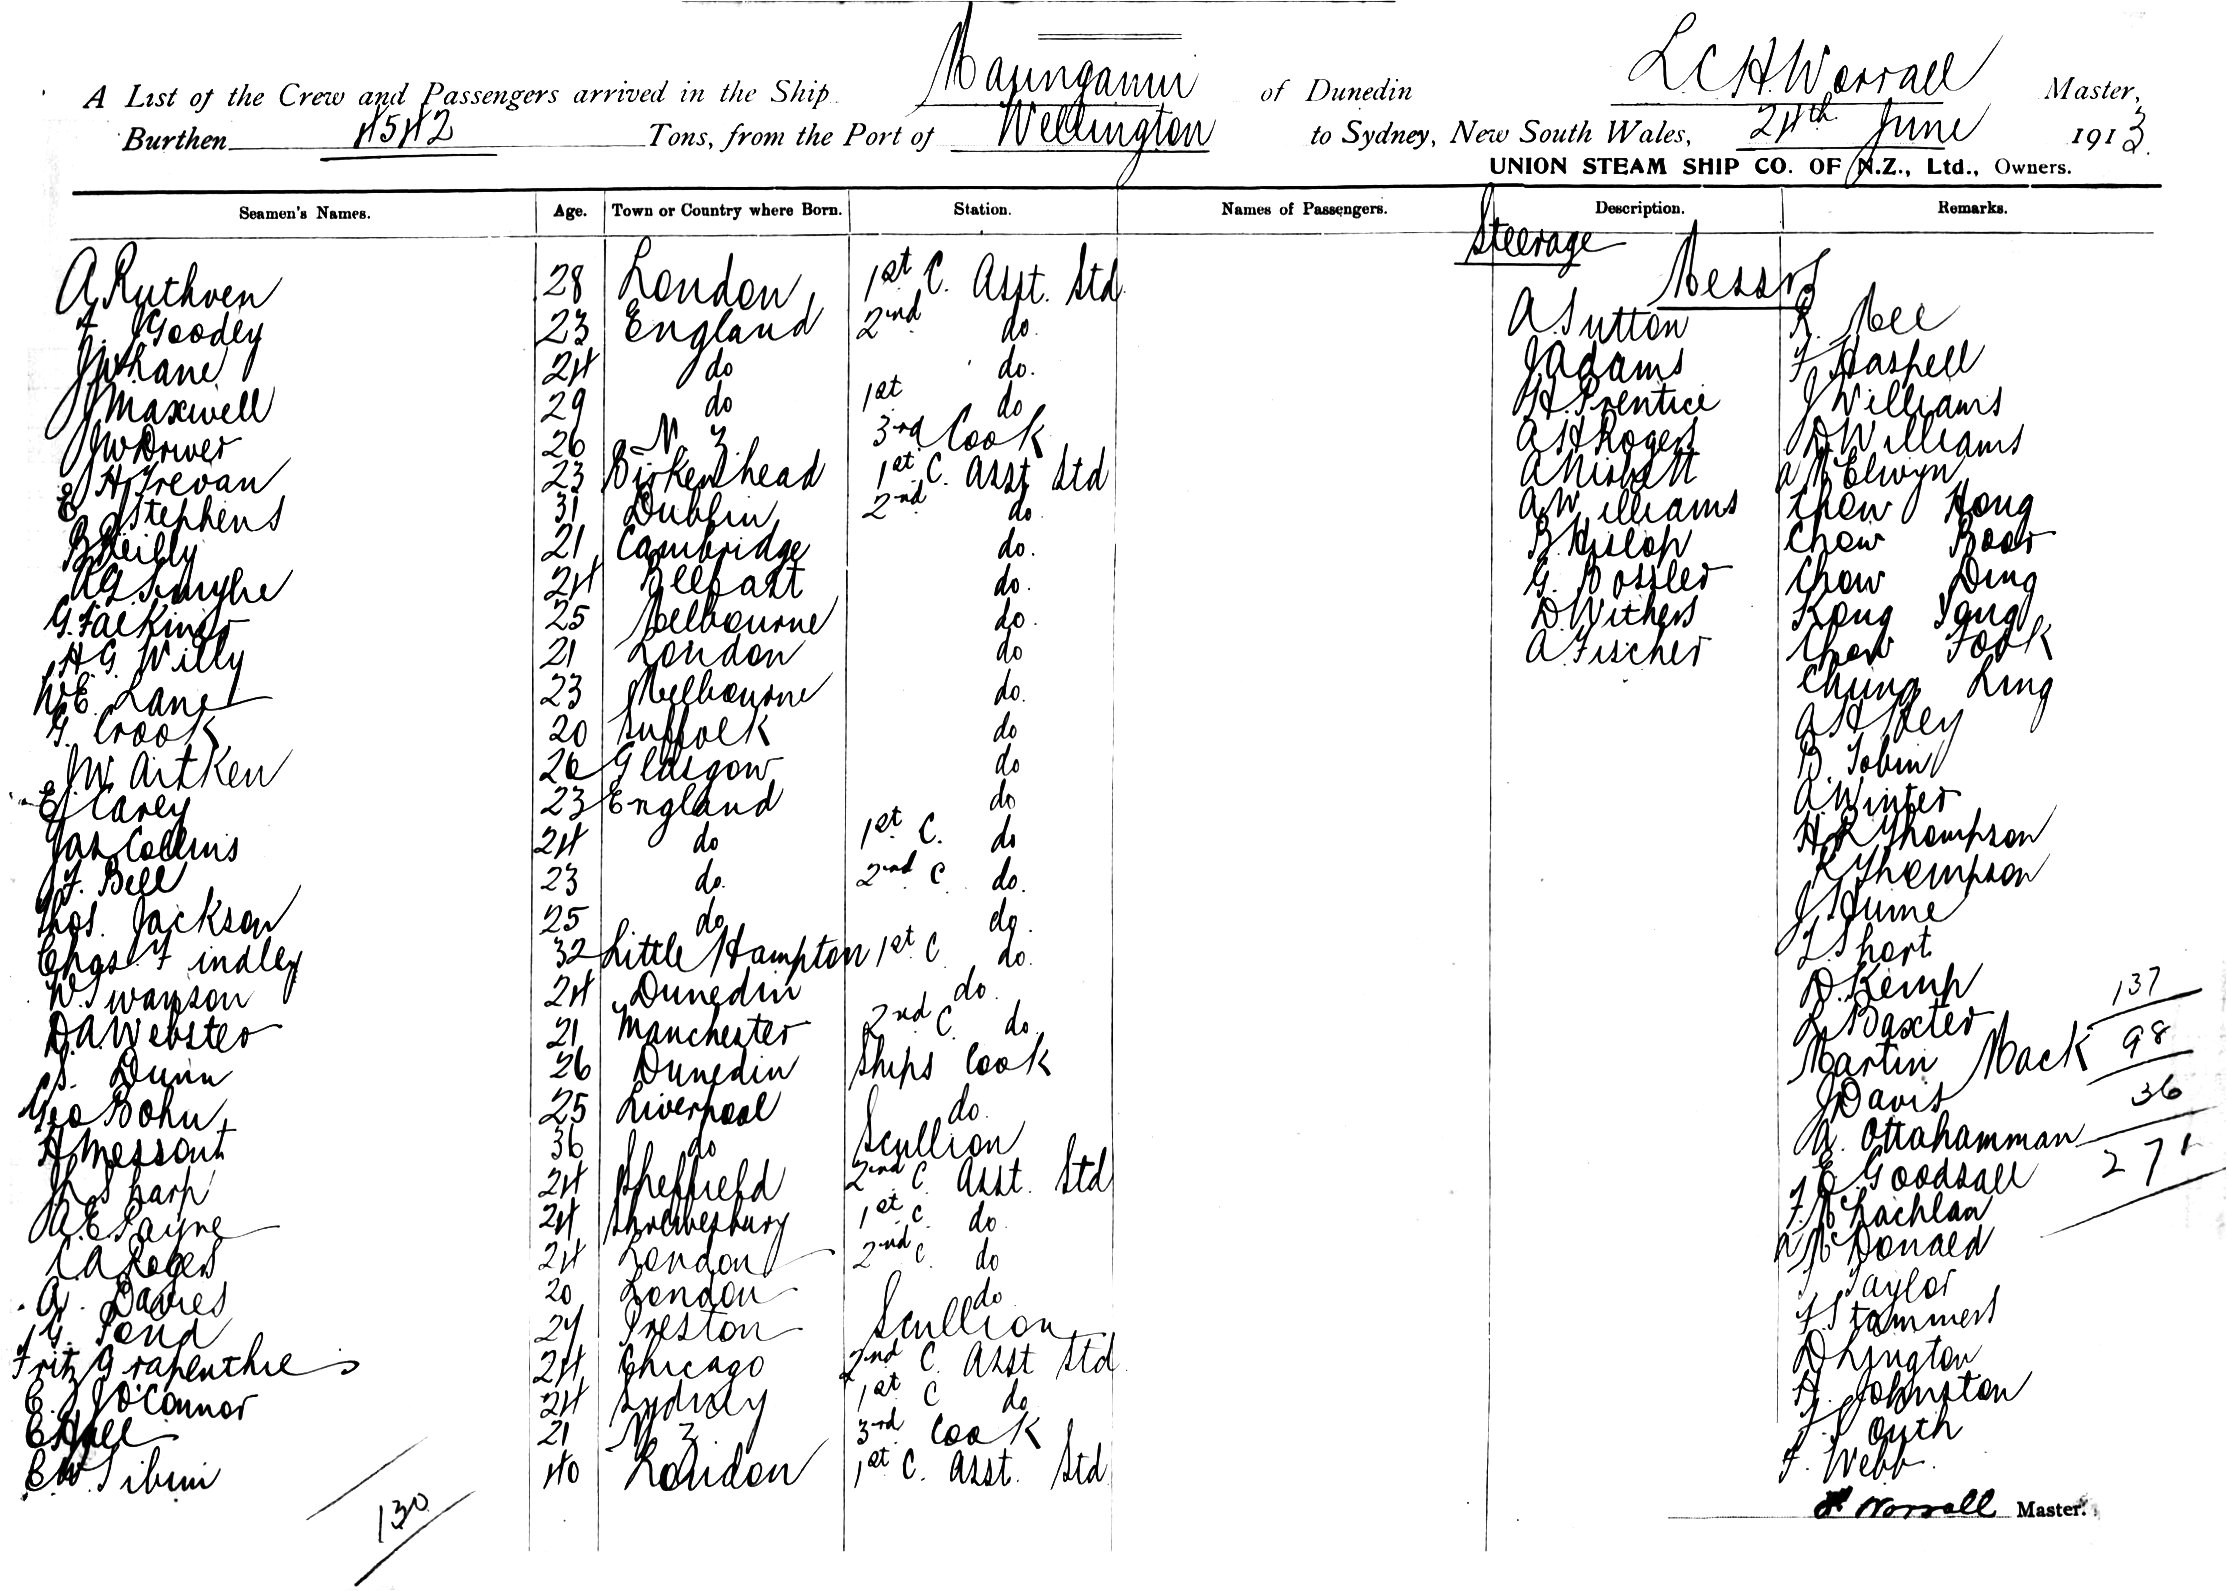 A List of the Crew and Passengers arrived in the Ship Maunganui of Dunedin L C H Worrall Master,
Burthen 4542 Tons, from the Port of Wellington to Sydney, New South Wales, 24th June 1913.
UNION STEAM SHIP CO. OF N.Z., Ltd., Owners.
Seamen's Names. Age. Town or Country where Born. Station. Names of Passengers. Description. Remarks.
Steerage
Messrs
A Ruthven 28 London 1st C. Asst. Std
F. Goodey 23 England 2nd do. A. Sutton R. Mee
24 do do. J Adams F Haskell
J Maxwell 29 do 1st do H. Prentice J Williams
J W Driver 26 N Z 3rd Cook A H Rogers D Williams
H Trevan 23 Birkenhead 1st C. Asst Std A Nisbett A McElwyn
E J Stephens 31 Dublin 2nd do A Williams Chow Hong
B Reilly 21 Cambridge do. B. Hislop Chow
A G Smythe 24 Belfast do. G. Bossler Chow Ding
G. Falkiner 25 Melbourne do. D Withers Kong
H. G. Willy 21 London do A. Fischer Chow Fook
W E. Lane 23 Melbourne do. Chung Ling
G. Crook 20 Suffolk do
J. W. Aitken 26 Glasgow do B. Tobin
E J Carey 23 England do A. Winter
Jas Collins 24 do 1st C. do H R Thompson
J. F. Bell 23 do. 2nd C do. R Thompson
Thos. Jackson 25 do do. J Hume
Chas. Findley 32 Little Hampton 1st C do. L. Short
W. Swanson 24 Dunedin do. D. Kemp 137
D. A. Webster 21 Manchester 2nd C. do. L Baxter
S. Dunn 26 Dunedin Ships Cook Martin Mack 98
Geo Bohn 25 Liverpool do. J Davis 36
H Messant 36 do Scullion A. Ottahamman
J Sharp 24 Sheffield 2nd C. Asst. Std E Goodsall 271
A. E Payne 24 Shrewsbury 1st C. do F. McLachlan
A Rogers 24 London 2nd C. do A McDonald
A. Davies 20 London do Taylor
G. Pond 24 Preston Scullion F. Stammers
Fritz Grapenthie 24 Chicago 2nd C. Asst Std D Lington
E. J O'Connor 24 Sydney 1st C do H. Johnston
E Hall 21 N Z 3rd Cook South
E W. Tibini 40 London 1st C. Asst. Std F. Webb
Worrall Master.
130